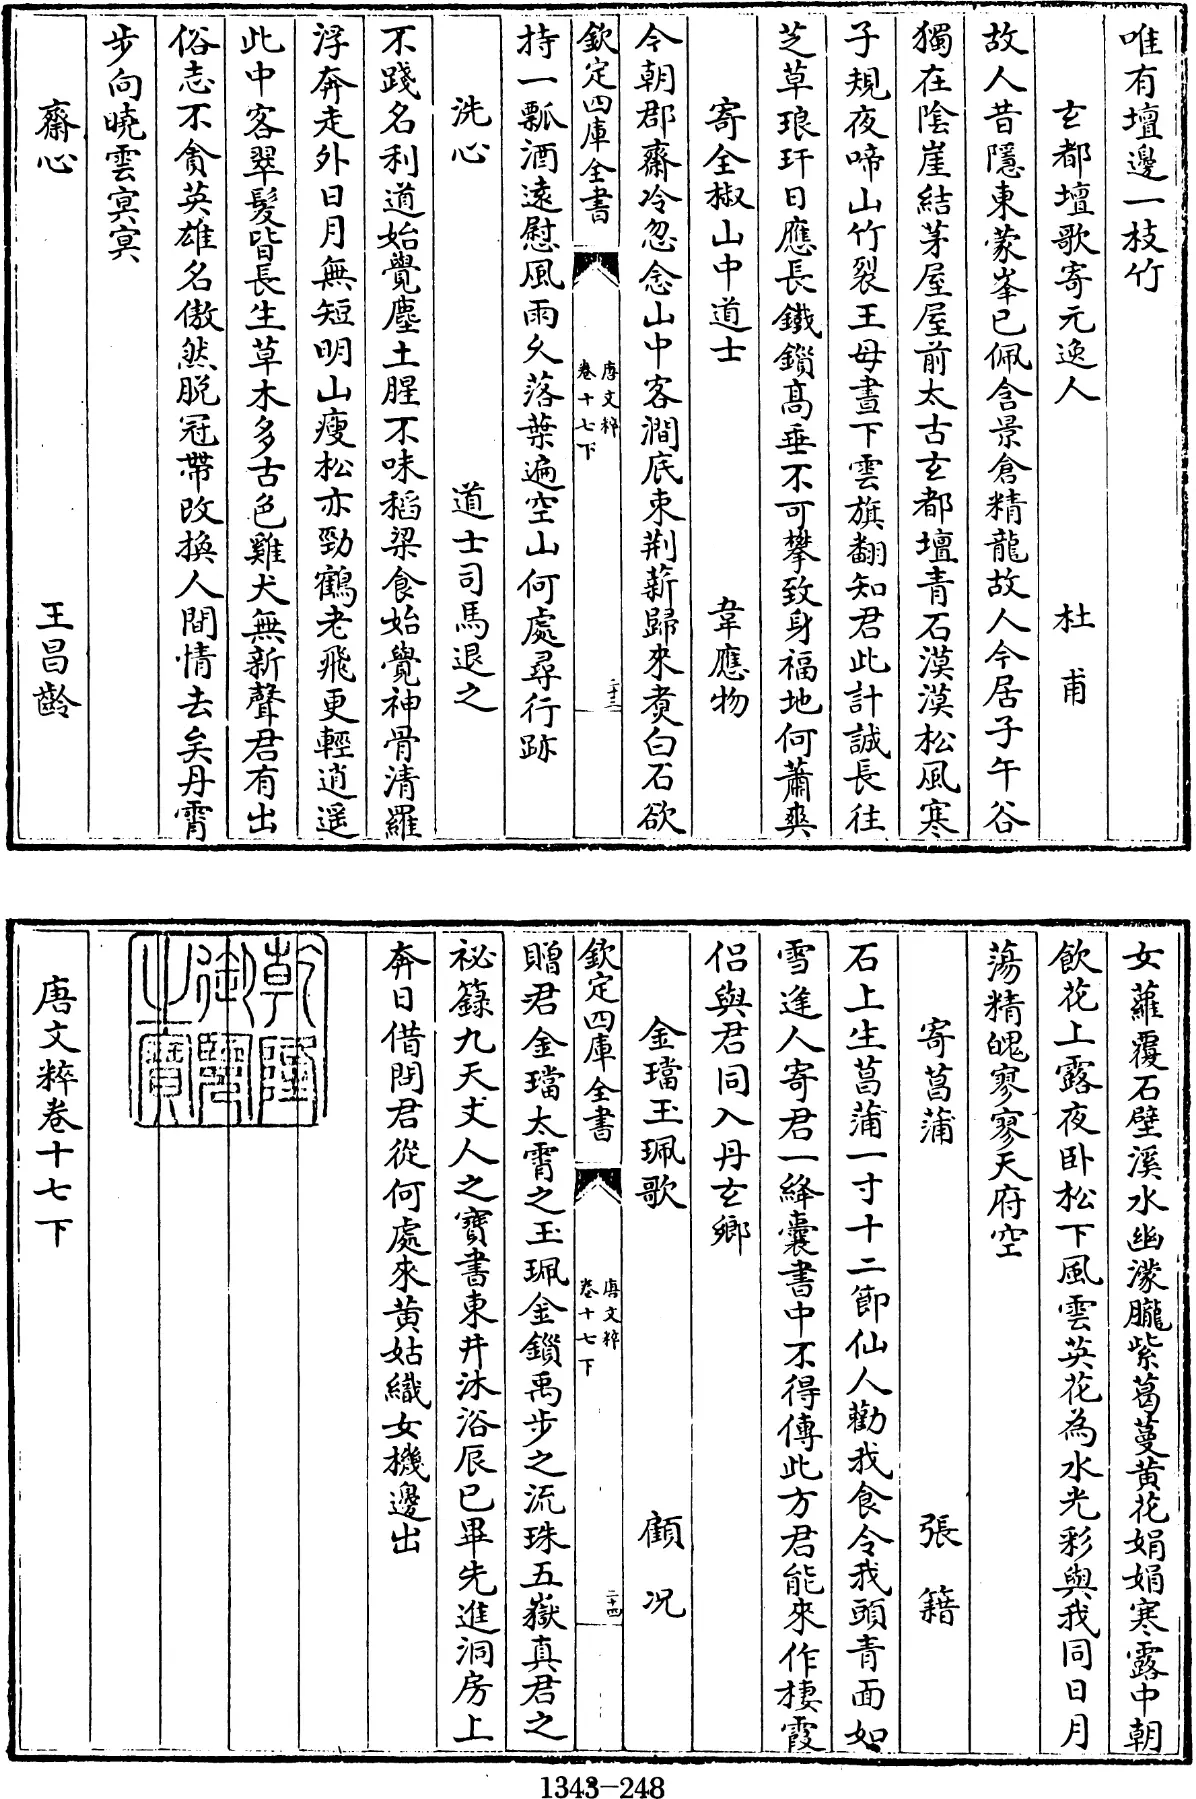 唯有壇邊一枝竹
玄都壇歌寄元逸人 杜甫
故人昔隱東蒙峯已佩含景倉精龍故人今居子午谷
獨在陰崖結茅屋屋前太古玄都壇青石漠漠松風寒
子規夜啼山竹裂王母晝下雲旗翻知君此計誠長往
芝草琅玕日應長鐵鎖高垂不可攀致身福地何蕭爽
寄全椒山中道士 韋應物
今朝郡齋冷忽念山中客澗底束荆薪歸來煑白石欲
欽定四庫全書 唐文粹 卷十七下 二十三
持一瓢酒遠慰風雨夂落葉遍空山何處尋行跡
洗心 道士司馬退之
不踐名利道始覺塵土腥不味稻粱食始覺神骨清羅
浮奔走外日月無短明山瘦松亦勁鶴老飛更輕逍遥
此中客翠髮皆長生草木多古色雞犬無新聲君有出
俗志不貪英雄名傲然脱冠帶改換人間情去矣丹霄
步向曉雲冥冥
齋心 王昌齡
女蘿覆石壁溪水幽濛朧紫葛蔓黄花娟娟寒露中朝
飲花上露夜卧松下風雲英花為水光彩與我同日月
蕩精魄寥寥天府空
寄菖蒲 張籍
石上生菖蒲一寸十二節仙人勸我食令我頭青面如
雪逢人寄君一絳囊書中不得傳此方君能來作棲霞
侣與君同入丹玄鄉
金璫玉珮歌 顧况
欽定四庫全書 唐文粹 卷十七下 二十四
贈君金璫太霄之玉珮金鎖禹步之流珠五嶽真君之
祕籙九天丈人之寶書東井沐浴辰已畢先進洞房上
奔日借問君從何處來黄姑織女機邊出
乾隆御覽之寶
唐文粹卷十七下
1343-248